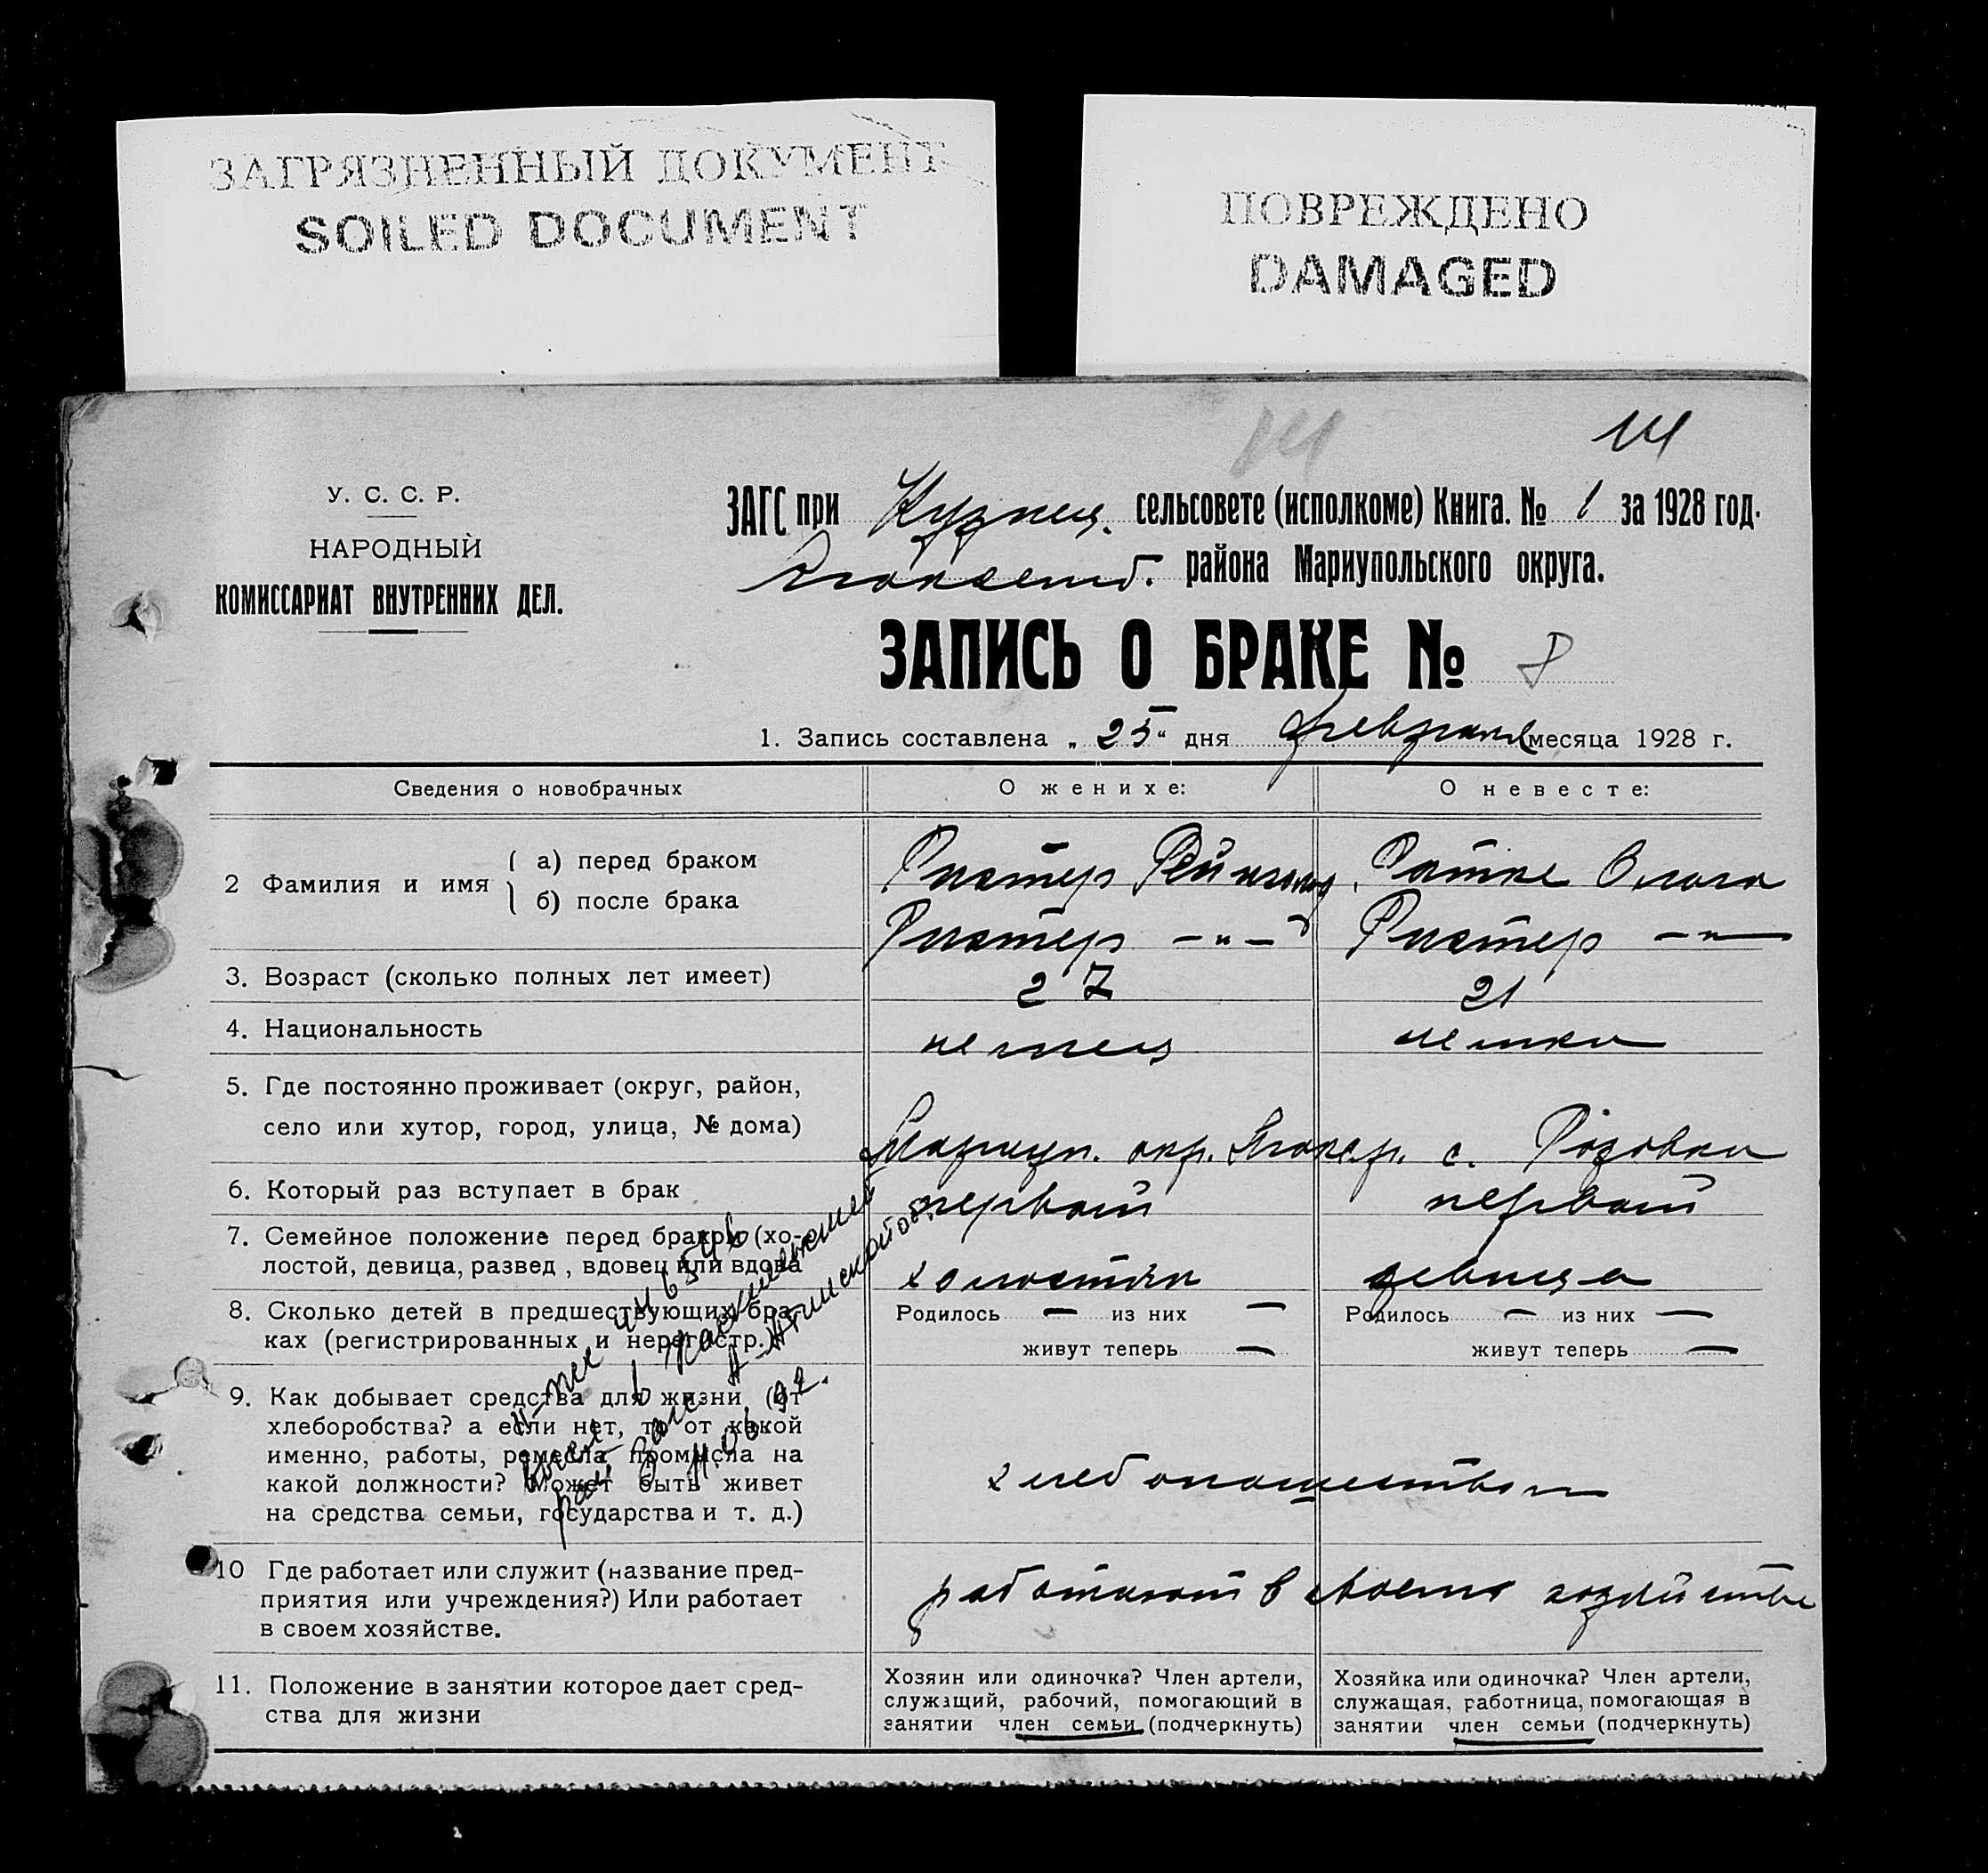 ЗАГРЯЗНЕННЫЙ ДОКУМЕНТ
SOILED DOCUMENT
ПОВРЕЖДЕНО
DAMAGED
У. С. С. Р.
НАРОДНЫЙ
КОМИССАРИАТ ВНУТРЕННИХ ДЕЛ.
ЗАГС при Кузнец. сельсовете (исполкоме) Книга. № 1 за 1928 год.
района Мариупольского округа.
ЗАПИСЬ О БРАКЕ № 8
1. Запись составлена „25“ дня февраля месяца 1928 г.
Сведения о новобрачных О женихе: О невесте:
2 Фамилия и имя а) перед браком Рихтер Рейнгольд Ратке Ольга
б) после брака Рихтер —"— Рихтер —"—
3. Возраст (сколько полных лет имеет) 27 21
4. Национальность немец немка
5. Где постоянно проживает (округ, район,
село или хутор, город, улица, № дома) Мариуп. окр. с. Розовка
6. Который раз вступает в брак первый первый
7. Семейное положение перед браком (хо-
лостой, девица, развед, вдовец или вдова холостяк девица
8. Сколько детей в предшествующих бра-
ках (регистрированных и нерегистр.) Родилось — из них — Родилось — из них —
живут теперь — живут теперь —
9. Как добывает средства для жизни (от
хлеборобства? а если нет, то от какой
именно, работы, ремесла, промысла на
какой должности? Может быть живет
на средства семьи, государства и т. д.) хлебопашеством
10 Где работает или служит (название пред-
приятия или учреждения?) Или работает
в своем хозяйстве. работают в своем хозяйстве
11. Положение в занятии которое дает сред-
ства для жизни
Хозяин или одиночка? Член артели,
служащий, рабочий, помогающий в
занятии член семьи (подчеркнуть)
Хозяйка или одиночка? Член артели,
служащая, работница, помогающая в
занятии член семьи (подчеркнуть)